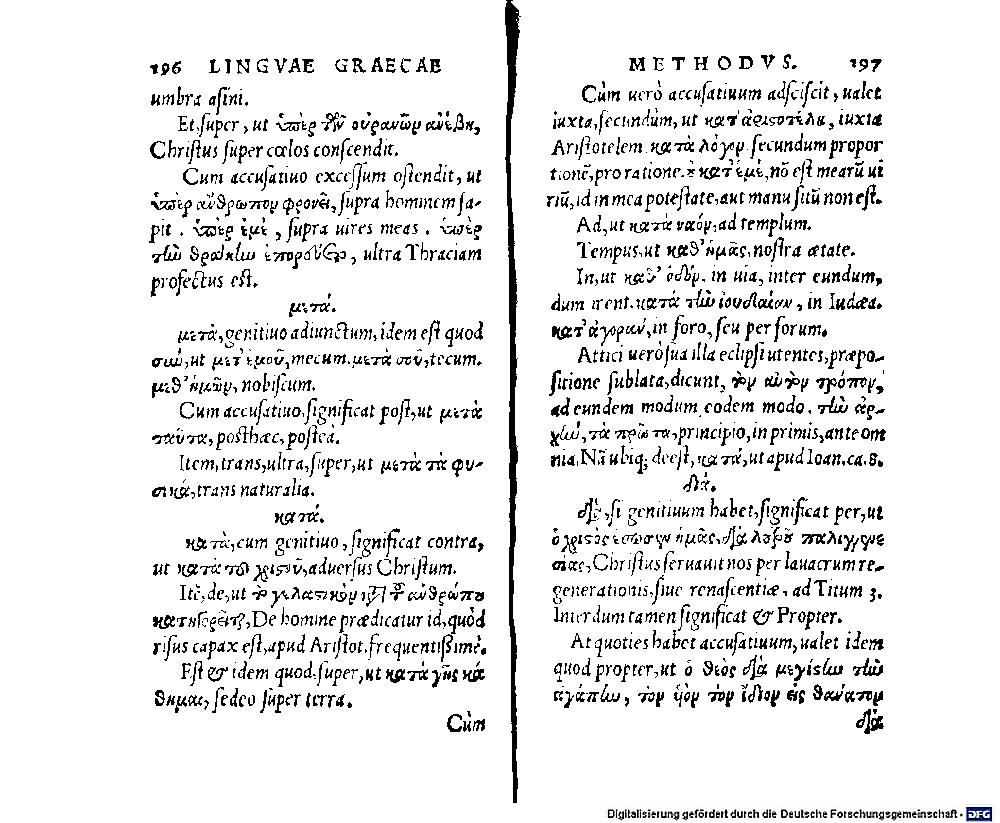 196 LINGVAE GRAECAE
umbra aſini.
Et ſuper, ut ὑπὲρ τῶν οὐρανῶν ἀνέβη,
Chriſtus ſuper cœlos conſcendit.
Cum accuſatiuo exceſſum oſtendit, ut
ὑπὲρ ἄνθρωπον φρονεῖ, ſupra hominem ſa-
pit. ὑπὲρ ἐμὲ, ſupra uires meas. ὑπὲρ
τὴν θρᾴκην ἐπορεύετο, ultra Thraciam
profectus eſt.
μετά.
μετὰ, genitiuo adiunctum, idem eſt quod
σὺν, ut μετ' ἐμοῦ, mecum. μετὰ σοῦ, tecum.
μεθ' ἡμῶν, nobiſcum.
Cum accuſatiuo, ſignificat poſt, ut μετὰ
ταῦτα, poſthæc, poſteà.
Item, trans, ultra, ſuper, ut μετὰ τὰ φυ-
σικὰ, trans naturalia.
κατά.
κατὰ, cum genitiuo, ſignificat contra,
ut κατὰ τοῦ χριστοῦ, aduerſus Chriſtum.
Itē, de, ut τὸ γελαστικὸν τοῦ ἀνθρώπου
κατηγορεῖται, De homine prædicatur id, quòd
riſus capax eſt, apud Ariſtot. frequentiſsimè.
Eſt & idem quod ſuper, ut κατὰ γῆς κά
θημαι, ſedeo ſuper terra.
Cùm
METHODVS. 197
Cùm uerò accuſatiuum adſciſcit, ualet
iuxta, ſecundùm, ut κατ' ἀριστοτέλη, iuxta
Ariſtotelem. κατὰ λόγον ſecundum propor
tionē, pro ratione. κατ' ἐμὲ, nō eſt mearū ui
riū, id in mea poteſtate, aut manu ſitū non eſt.
Ad, ut κατὰ ναὸν, ad templum.
Tempus, ut καθ' ἡμᾶς, noſtra ætate.
In, ut καθ' ὁδὸν. in uia, inter eundum,
dum irent. κατὰ τὴν ἰουδαίαν, in Iudæa.
κατ' ἀγορὰν, in foro, ſeu per forum.
Attici uerò ſua illa eclipſi utentes, præpo-
ſitione ſublata, dicunt, τὸν αὐτὸν τρόπον,
ad eundem modum, eodem modo. τὴν ἀρ-
χὴν, τὰ πρῶτα, principio, in primis, ante om
nia. Nā ubiq; deeſt, κατὰ, ut apud Ioan. ca. 8.
διά.
διὰ, ſi genitiuum habet, ſignificat per, ut
ὁ χριστὸς ἔσωσεν ἡμᾶς, διὰ λουτροῦ παλιγγενε
σίας, Chriſtus ſeruauit nos per lauacrum re-
generationis, ſiue renaſcentiæ. ad Titum 3.
Interdum tamen ſignificat & Propter.
At quoties habet accuſatiuum, ualet idem
quod propter, ut ὁ θεὸς διὰ μεγίστην τὴν
ἀγάπην, τὸν υἱὸν τὸν ἴδιον εἰς θάνατον
διὰ
Digitalisierung gefördert durch die Deutsche Forschungsgemeinschaft - DFG